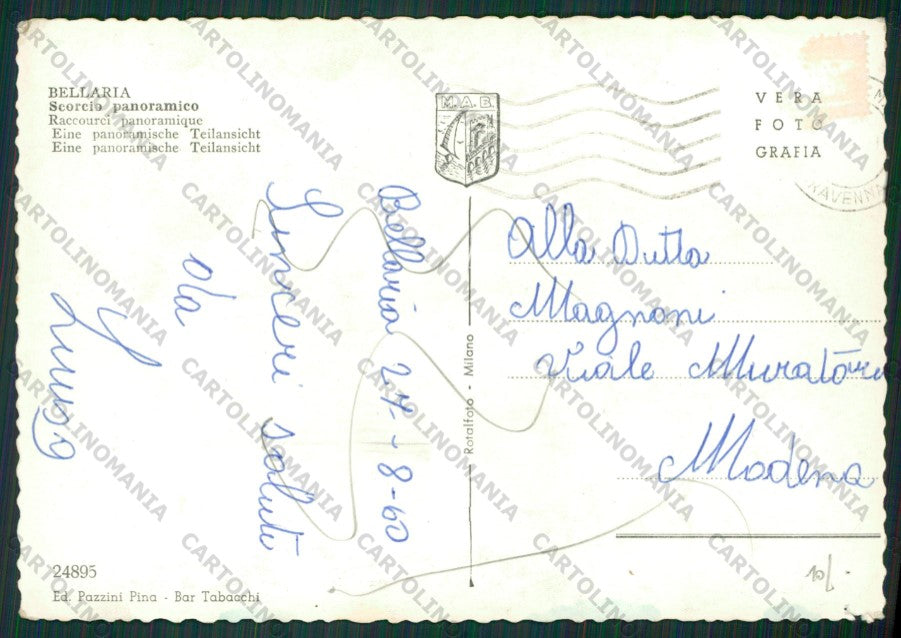 BELLARIA
Scorcio panoramico
Raccourci panoramique
Eine panoramische Teilansicht
Eine panoramische Teilansicht
M.A.B.
VERA
FOTO
GRAFIA
RAVENNA
Bellaria 24-8-60
Sinceri saluti
da
Alla Ditta
Magnoni
Viale Muratori
Modena
Rotalfoto - Milano
24895
Ed. Pazzini Pina - Bar Tabacchi
10/
CARTOLINOMANIA